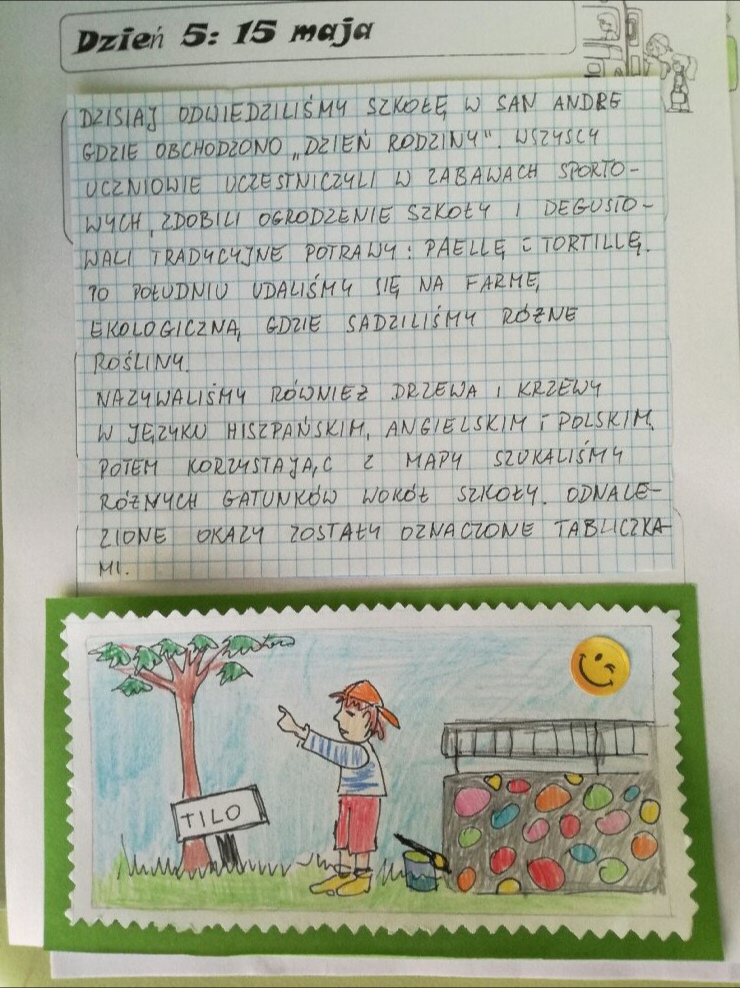 Dzień 5: 15 maja
DZISIAJ ODWIEDZILIŚMY SZKOŁĘ W SAN ANDRE
GDZIE OBCHODZONO „DZIEŃ RODZINY". WSZYSCY
UCZNIOWIE UCZESTNICZYLI W ZABAWACH SPORTO-
WYCH, ZDOBILI OGRODZENIE SZKOŁY I DEGUSTO-
WALI TRADYCYJNE POTRAWY: PAELLĘ I TORTILLĘ.
PO POŁUDNIU UDALIŚMY SIĘ NA FARMĘ
EKOLOGICZNĄ, GDZIE SADZILIŚMY RÓŻNE
ROŚLINY.
NAZYWALIŚMY RÓWNIEŻ DRZEWA I KRZEWY
W JĘZYKU HISZPAŃSKIM, ANGIELSKIM I POLSKIM.
POTEM KORZYSTAJĄC Z MAPY SZUKALIŚMY
RÓŻNYCH GATUNKÓW WOKÓŁ SZKOŁY. ODNALE-
ZIONE OKAZY ZOSTAŁY OZNACZONE TABLICZKA-
MI.
TILO